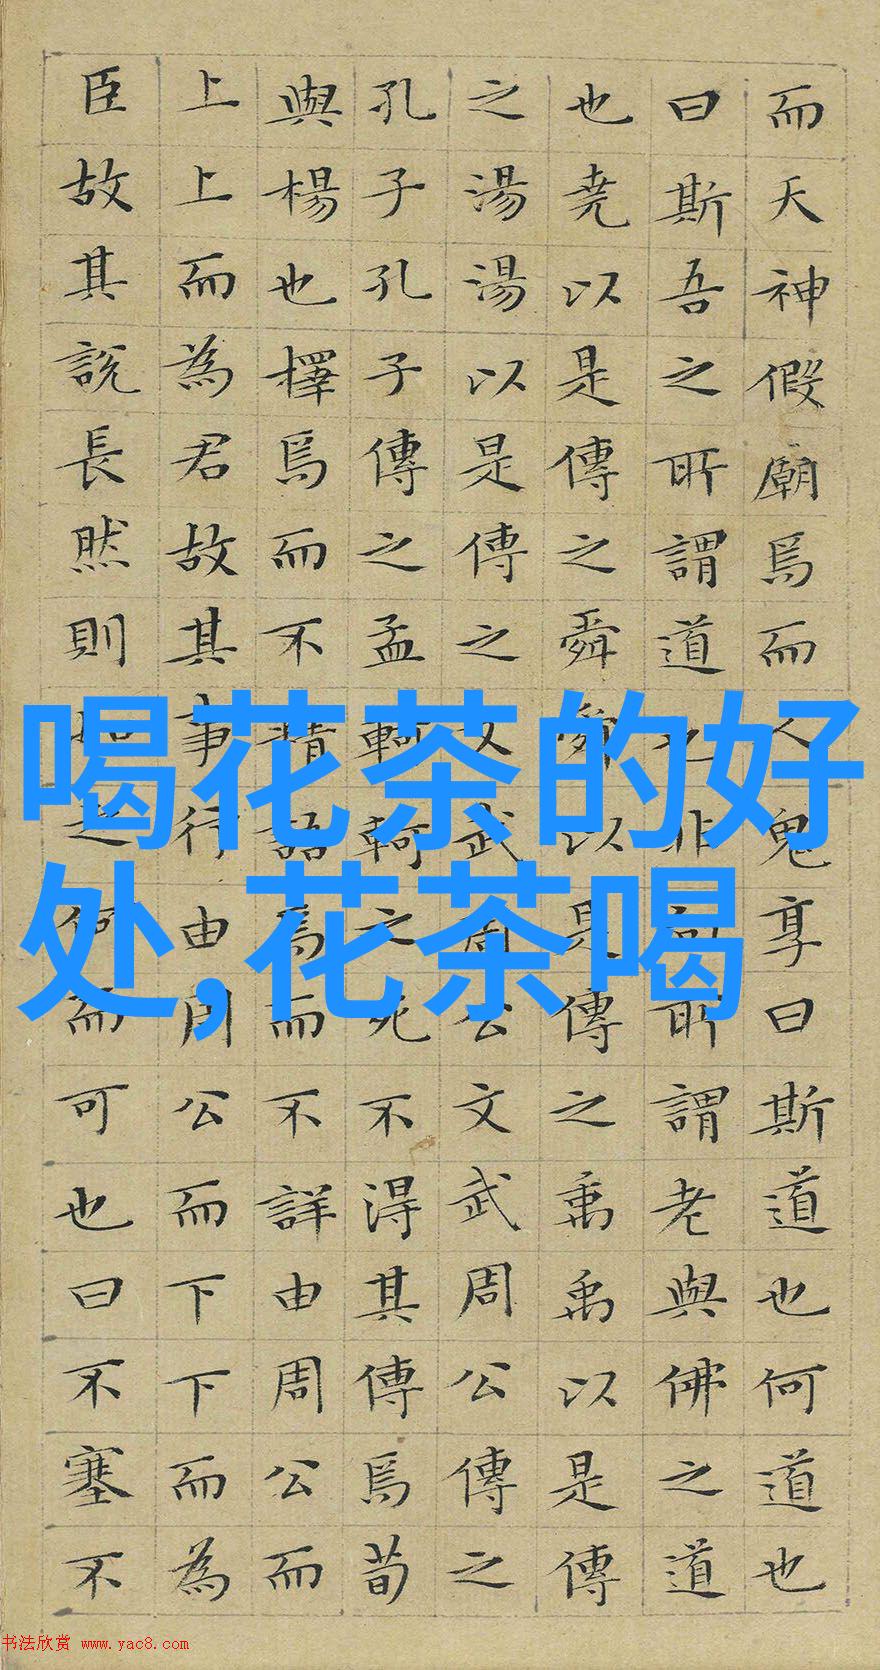 而天神假廟焉而人鬼享曰斯道也何道也
曰斯吾之所謂道也非向所謂老與佛之道
也堯以是傳之舜舜以是傳之禹禹以是傳
之湯湯以是傳之文武周公文武周公傳之
孔子孔子傳之孟軻軻之死不得其傳焉荀
與楊也擇焉而不精語焉而不詳由周公而
上上而為君故其事行由周公而下下而為
臣故其說長然則如之何而可也曰不塞不
喝花茶的好
处,花茶喝
书法欣赏 www.yac8.com